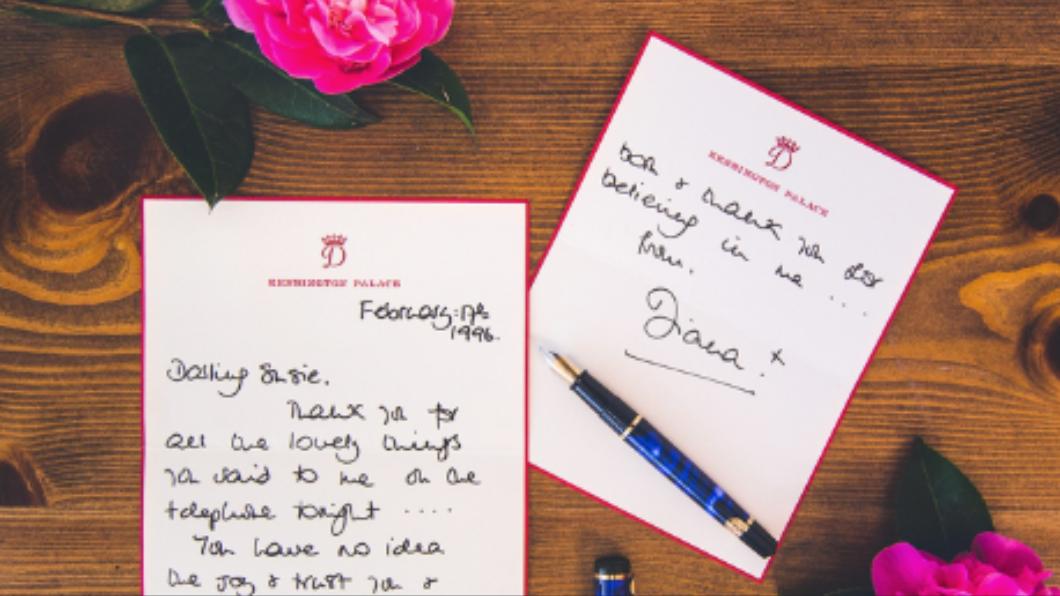 D
KENSINGTON PALACE
February: 17th
1996.
Darling Susie.
Thank you for
all the lovely things
you said to me on the
telephone tonight ....
You have no idea
the joy & trust you &
D
KENSINGTON PALACE
both & thank you for
believing in me ...
from.
Diana. x